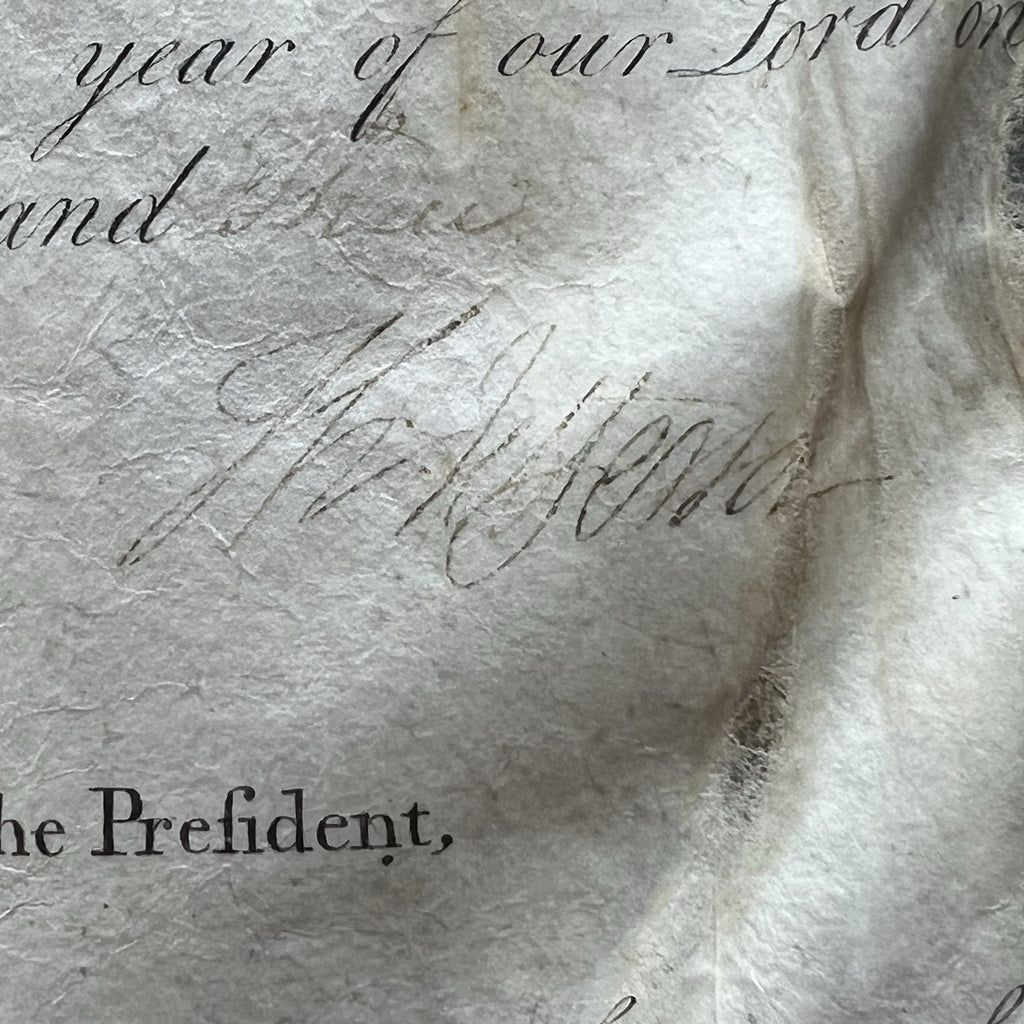 year of our Lord on
and three
Th: Jefferson
he Preſident,